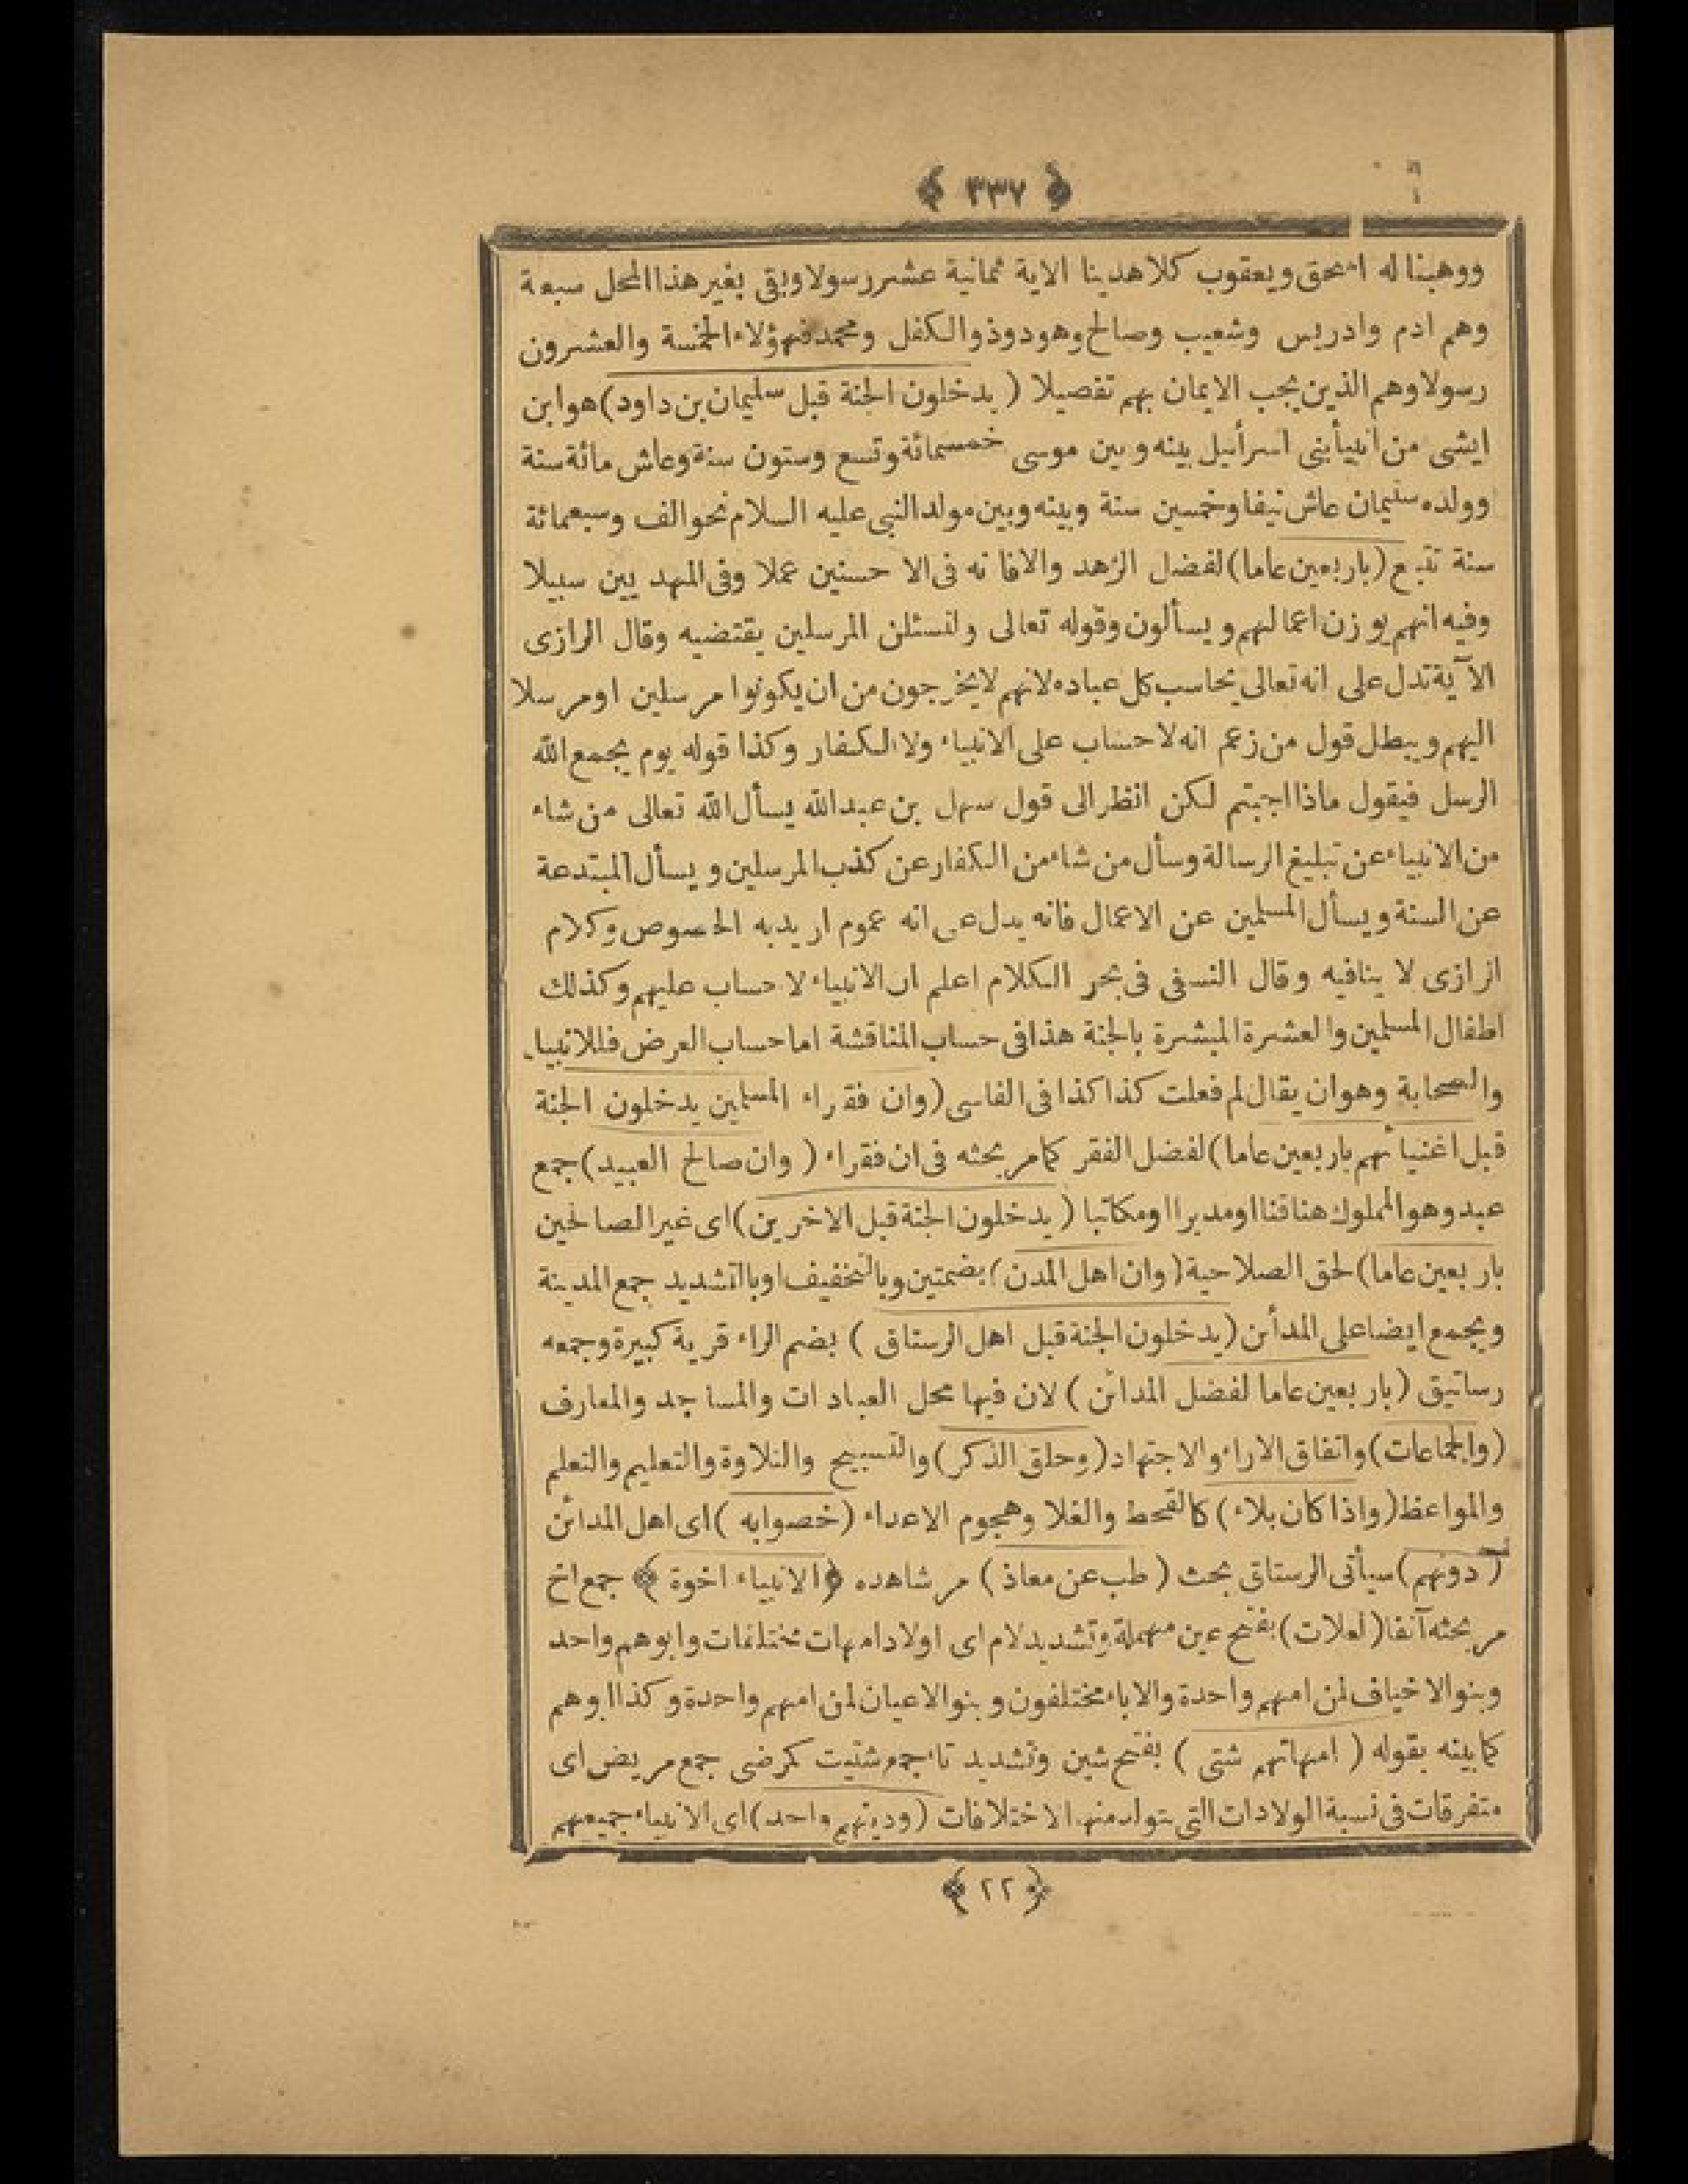 ﴿ ٣٣٧ ﴾
ووهبناله اسحق ويعقوب كلاهدينا الاية ثمانية عشررسولاوبقى بغير هذاالمحل سبعة
وهم ادم وادريس وشعيب وصالح وهودوذوالكفل ومحمدفهؤلاء الخمسة والعشرون
رسولاوهم الذين يجب الايمان بهم تفصيلا (يدخلون الجنة قبل سليمان بن داود) هوابن
ايشى من انبيأبنى اسرأئيل بينه وبين موسى خمسمائة وتسع وستون سنة وعاش مائة سنة
وولده سليمان عاش نيفاوخمسين سنة وبينه وبين مولدالنبى عليه السلام نحوالف وسبعمائة
سنة تتبع (باربعين عاما) لفضل الزهد والافانه فى الا حسنين عملا وفى المهديين سبيلا
وفيه انهم يوزن اعمالهم ويسألون وقوله تعالى ولنسئلن المرسلين يقتضيه وقال الرازى
الآية تدل على انه تعالى يحاسب كل عباده لانهم لايخرجون من ان يكونوا مرسلين اومرسلا
اليهم ويبطل قول من زعم انه لاحساب على الانبياء ولاالكفار وكذا قوله يوم يجمع الله
الرسل فيقول ماذااجبتم لكن انظرالى قول سهل بن عبدالله يسأل الله تعالى من شاء
من الانبياء عن تبليغ الرسالة وسأل من شاءمن الكفارعن كذب المرسلين ويسأل المبتدعة
عن السنة ويسأل المسلمين عن الاعمال فانه يدل على انه عموم اريدبه الخصوص وكلام
الرازى لا ينافيه وقال النسفى فى بحر الكلام اعلم ان الانبياء لاحساب عليهم وكذلك
اطفال المسلمين والعشرة المبشرة بالجنة هذافى حساب المناقشة اماحساب العرض فللانبياء
والصحابة وهوان يقال لم فعلت كذاكذافى الفاسى (وان فقراء المسلمين يدخلون الجنة
قبل اغنيائهم باربعين عاما) لفضل الفقر كمامر بحثه فى ان فقراء (وان صالح العبيد) جمع
عبدوهوالمملوك هناقنااومدبرااومكاتبا (يدخلون الجنة قبل الاخرين) اى غيرالصالحين
باربعين عاما) لحق الصلاحية (وان اهل المدن) بضمتين وبالتخفيف اوبالتشديد جمع المدينة
ويجمع ايضاعلى المدأئن (يدخلون الجنة قبل اهل الرستاق) بضم الراء قرية كبيرة وجمعه
رساتيق (باربعين عاما لفضل المدائن) لان فيها محل العبادات والمساجد والمعارف
(والجماعات) واتفاق الاراء والاجتهاد (وحلق الذكر) والتسبيح والتلاوة والتعليم والتعلم
والمواعظ (واذاكان بلاء) كالقحط والغلا وهجوم الاعداء (خصوابه) اى اهل المدائن
(دونهم) سيأتى الرستاق بحث (طب عن معاذ) مر شاهده ﴿الانبياء اخوة﴾ جمع اخ
مر بحثه آنفا (لعلات) بفتح عين مهملة وتشديدلام اى اولادامهات مختلفات وابوهم واحد
وبنوالاخياف لمن امهم واحدة والاباء مختلفون وبنوالاعيان لمن امهم واحدة وكذاابوهم
كمابينه بقوله (امهاتهم شتى) بفتح شين وتشديد تاء جمع شتيت كمرضى جمع مريض اى
متفرقات فى نسبة الولادات التى يتولدمنها الاختلافات (ودينهم واحد) اى الانبياء جميعهم
﴿ ٢٢ ﴾